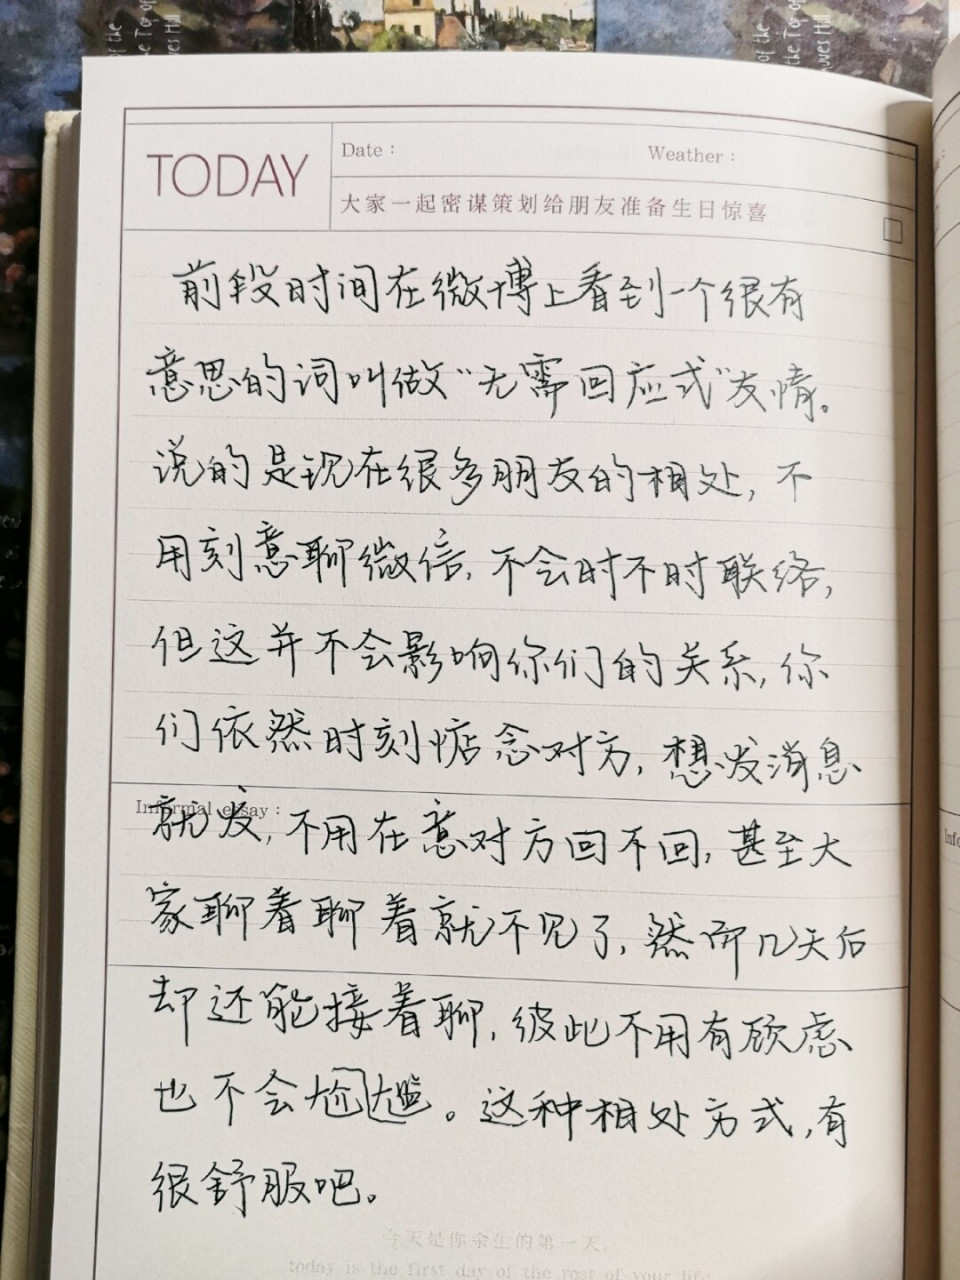 of the
the Top of
ower Hill
of the
the Top of
ower Hill
TODAY
Date：
Weather：
大家一起密谋策划给朋友准备生日惊喜
前段时间在微博上看到一个很有
意思的词叫做“无需回应式”友情。
说的是现在很多朋友的相处，不
用刻意聊微信，不会时不时联络，
但这并不会影响你们的关系，你
们依然时刻惦念对方，想发消息
Informal essay：
就发，不用在意对方回不回，甚至大
家聊着聊着就不见了，然而几天后
却还能接着聊，彼此不用有顾虑
也不会尴尬。这种相处方式，有
很舒服吧。
今天是你余生的第一天，
today is the first day of the rest of your life